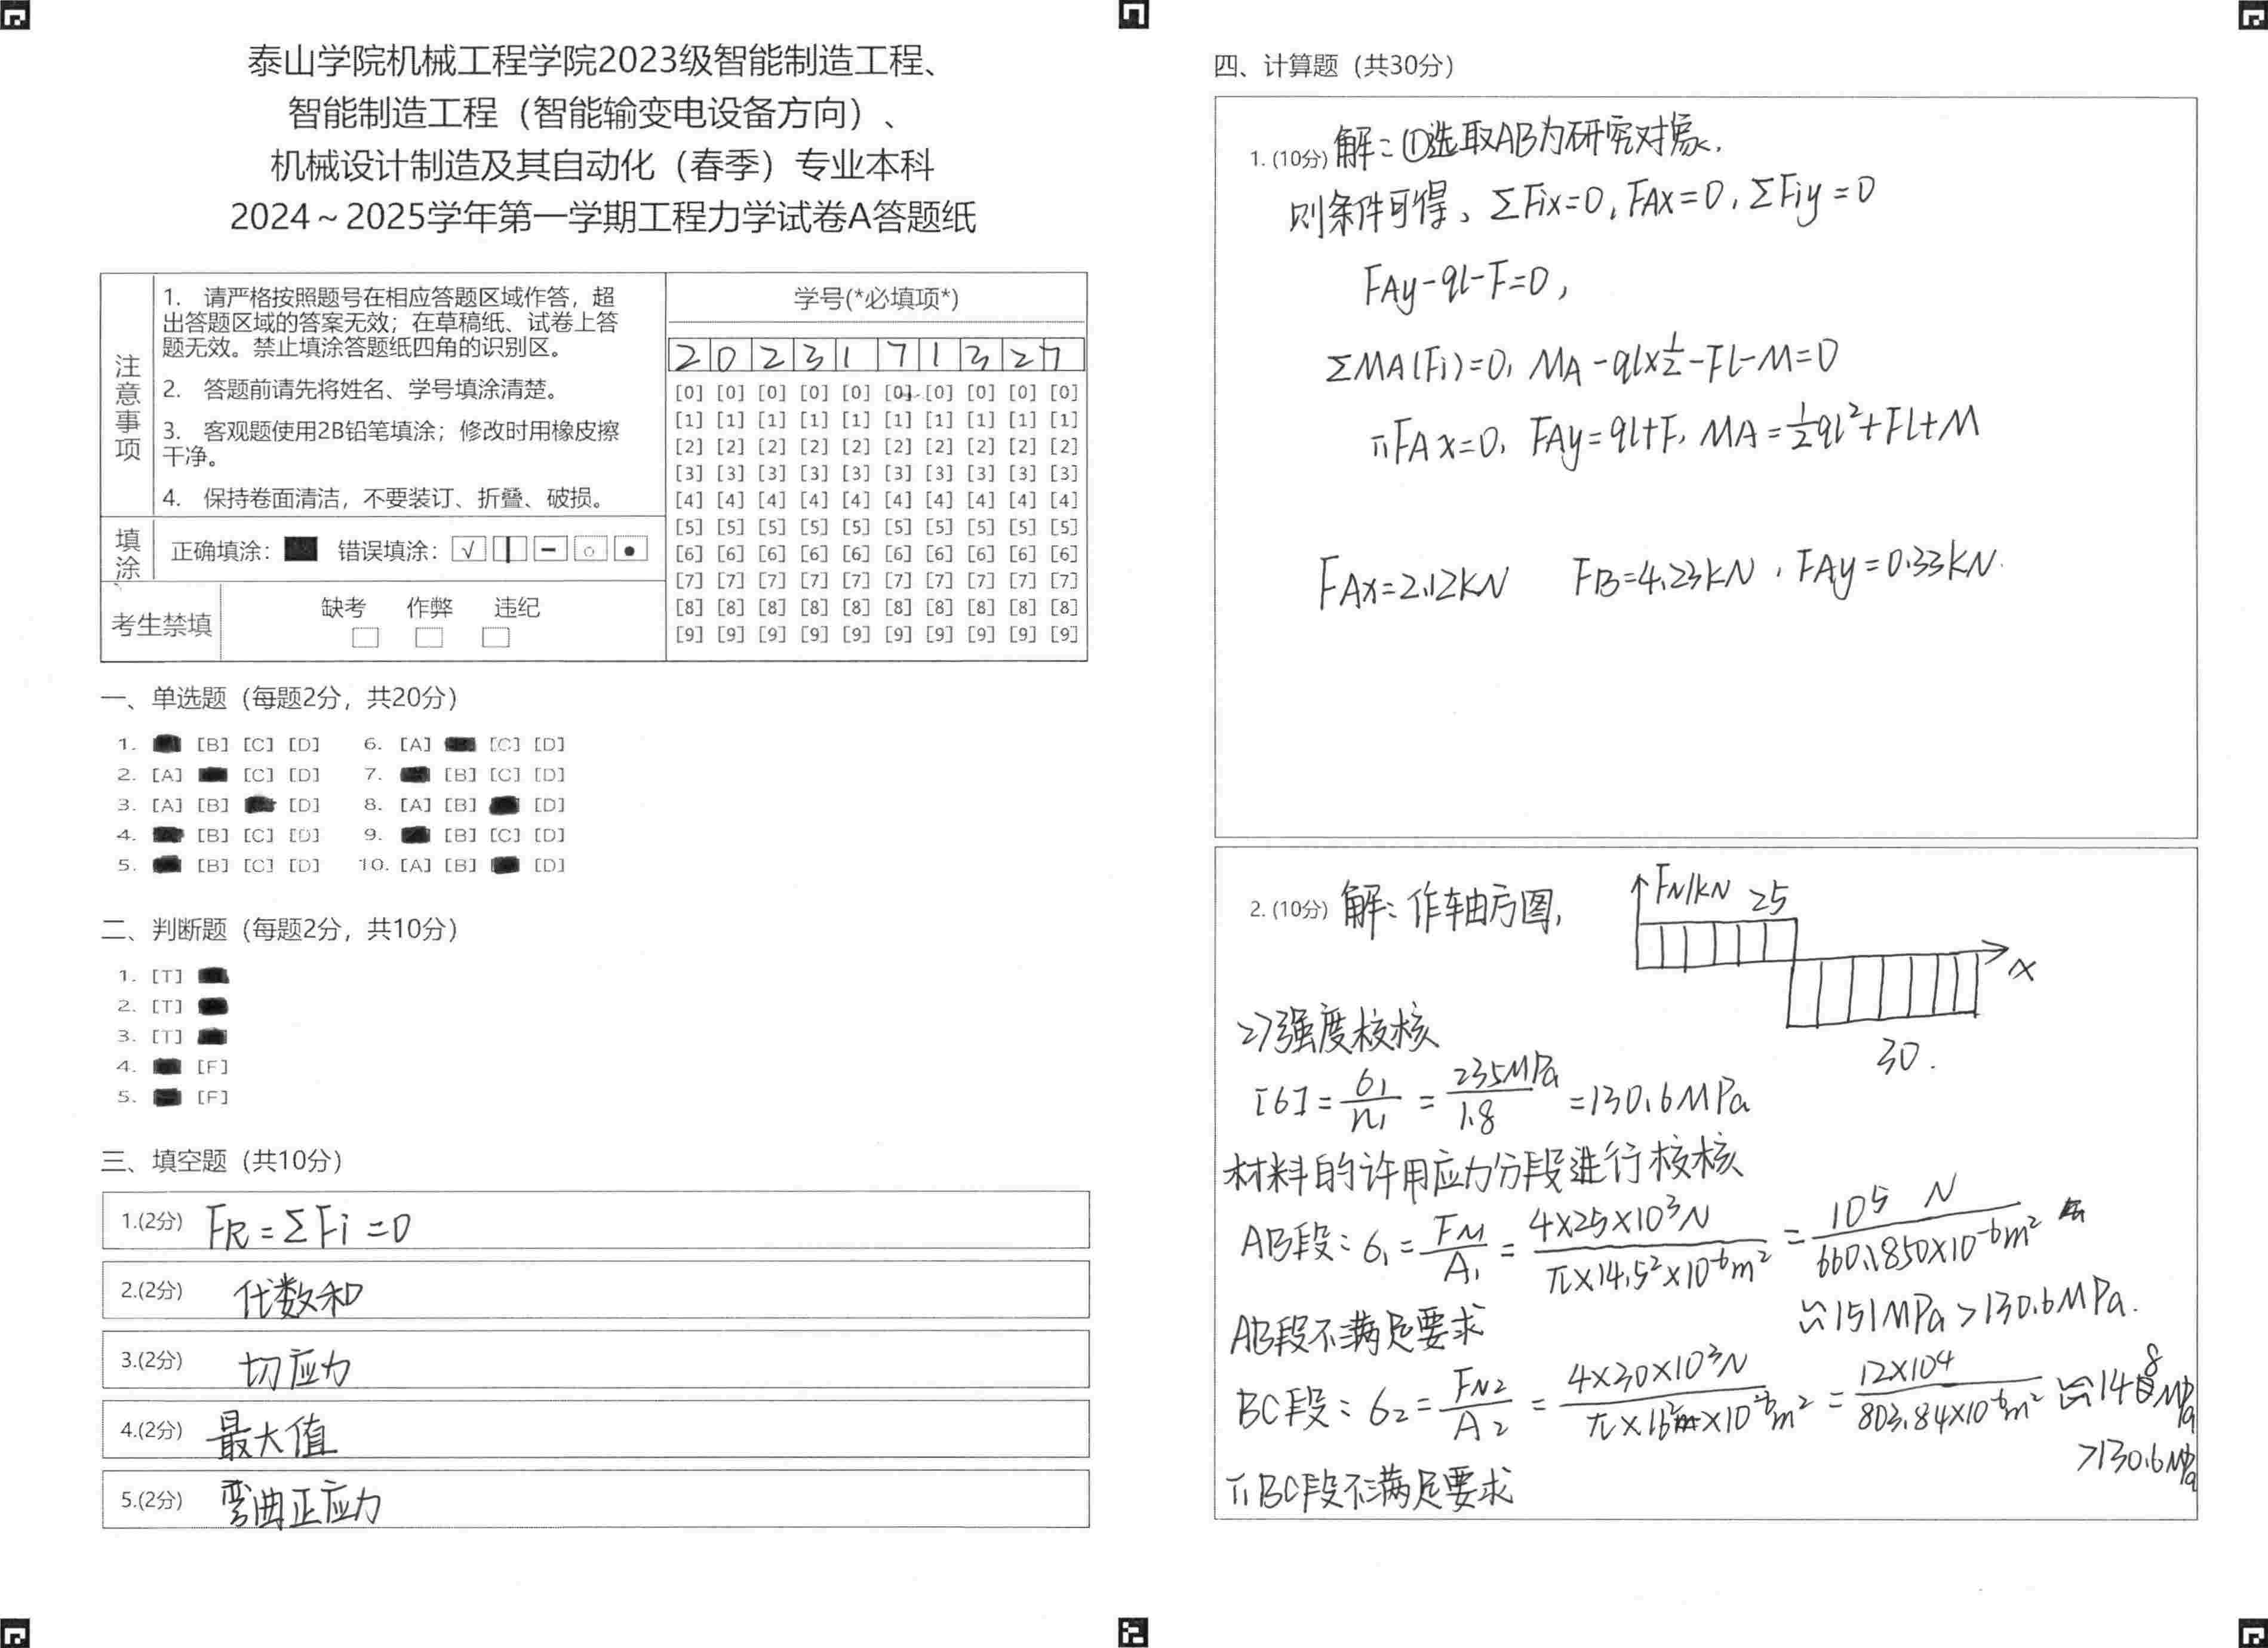 泰山学院机械工程学院2023级智能制造工程、
智能制造工程（智能输变电设备方向）、
机械设计制造及其自动化（春季）专业本科
2024～2025学年第一学期工程力学试卷A答题纸
注意事项
1. 请严格按照题号在相应答题区域作答，超
出答题区域的答案无效；在草稿纸、试卷上答
题无效。禁止填涂答题纸四角的识别区。
2. 答题前请先将姓名、学号填涂清楚。
3. 客观题使用2B铅笔填涂；修改时用橡皮擦
干净。
4. 保持卷面清洁，不要装订、折叠、破损。
填涂
正确填涂： 错误填涂：
考生禁填
缺考 作弊 违纪
学号(*必填项*)
2 0 2 3 1 7 1 3 2 7
[0] [0] [0] [0] [0] [0] [0] [0] [0] [0]
[1] [1] [1] [1] [1] [1] [1] [1] [1] [1]
[2] [2] [2] [2] [2] [2] [2] [2] [2] [2]
[3] [3] [3] [3] [3] [3] [3] [3] [3] [3]
[4] [4] [4] [4] [4] [4] [4] [4] [4] [4]
[5] [5] [5] [5] [5] [5] [5] [5] [5] [5]
[6] [6] [6] [6] [6] [6] [6] [6] [6] [6]
[7] [7] [7] [7] [7] [7] [7] [7] [7] [7]
[8] [8] [8] [8] [8] [8] [8] [8] [8] [8]
[9] [9] [9] [9] [9] [9] [9] [9] [9] [9]
一、单选题（每题2分，共20分）
1. [B] [C] [D] 6. [A] [C] [D]
2. [A] [C] [D] 7. [B] [C] [D]
3. [A] [B] [D] 8. [A] [B] [D]
4. [B] [C] [D] 9. [B] [C] [D]
5. [B] [C] [D] 10. [A] [B] [D]
二、判断题（每题2分，共10分）
1. [T]
2. [T]
3. [T]
4. [F]
5. [F]
三、填空题（共10分）
1.(2分) FR=ΣFi=0
2.(2分) 代数和
3.(2分) 切应力
4.(2分) 最大值
5.(2分) 弯曲正应力
四、计算题（共30分）
1. (10分) 解：①选取AB为研究对象.
则条件可得、ΣFix=0, FAx=0, ΣFiy=0
FAy-ql-F=0,
ΣMA(Fi)=0, MA-ql×l/2-Fl-M=0
FAx=0, FAy=ql+F, MA=1/2ql²+Fl+M
FAx=2.12kN FB=4.23kN, FAy=0.33kN.
2. (10分) 解：作轴力图,
FN/kN 25
x
30.
2)强度校核
[σ]=σ1/n1=235MPa/1.8=130.6MPa
材料的许用应力分段进行校核
AB段：σ1=FN1/A1=4×25×10³N/π×14.5²×10⁻⁶m²=10⁵N/660.1850×10⁻⁶m²
≈151MPa>130.6MPa.
AB段不满足要求
BC段：σ2=FN2/A2=4×30×10³N/π×16²×10⁻⁶m²=12×10⁴/803.84×10⁻⁶m²≈148MPa
>130.6MPa
BC段不满足要求